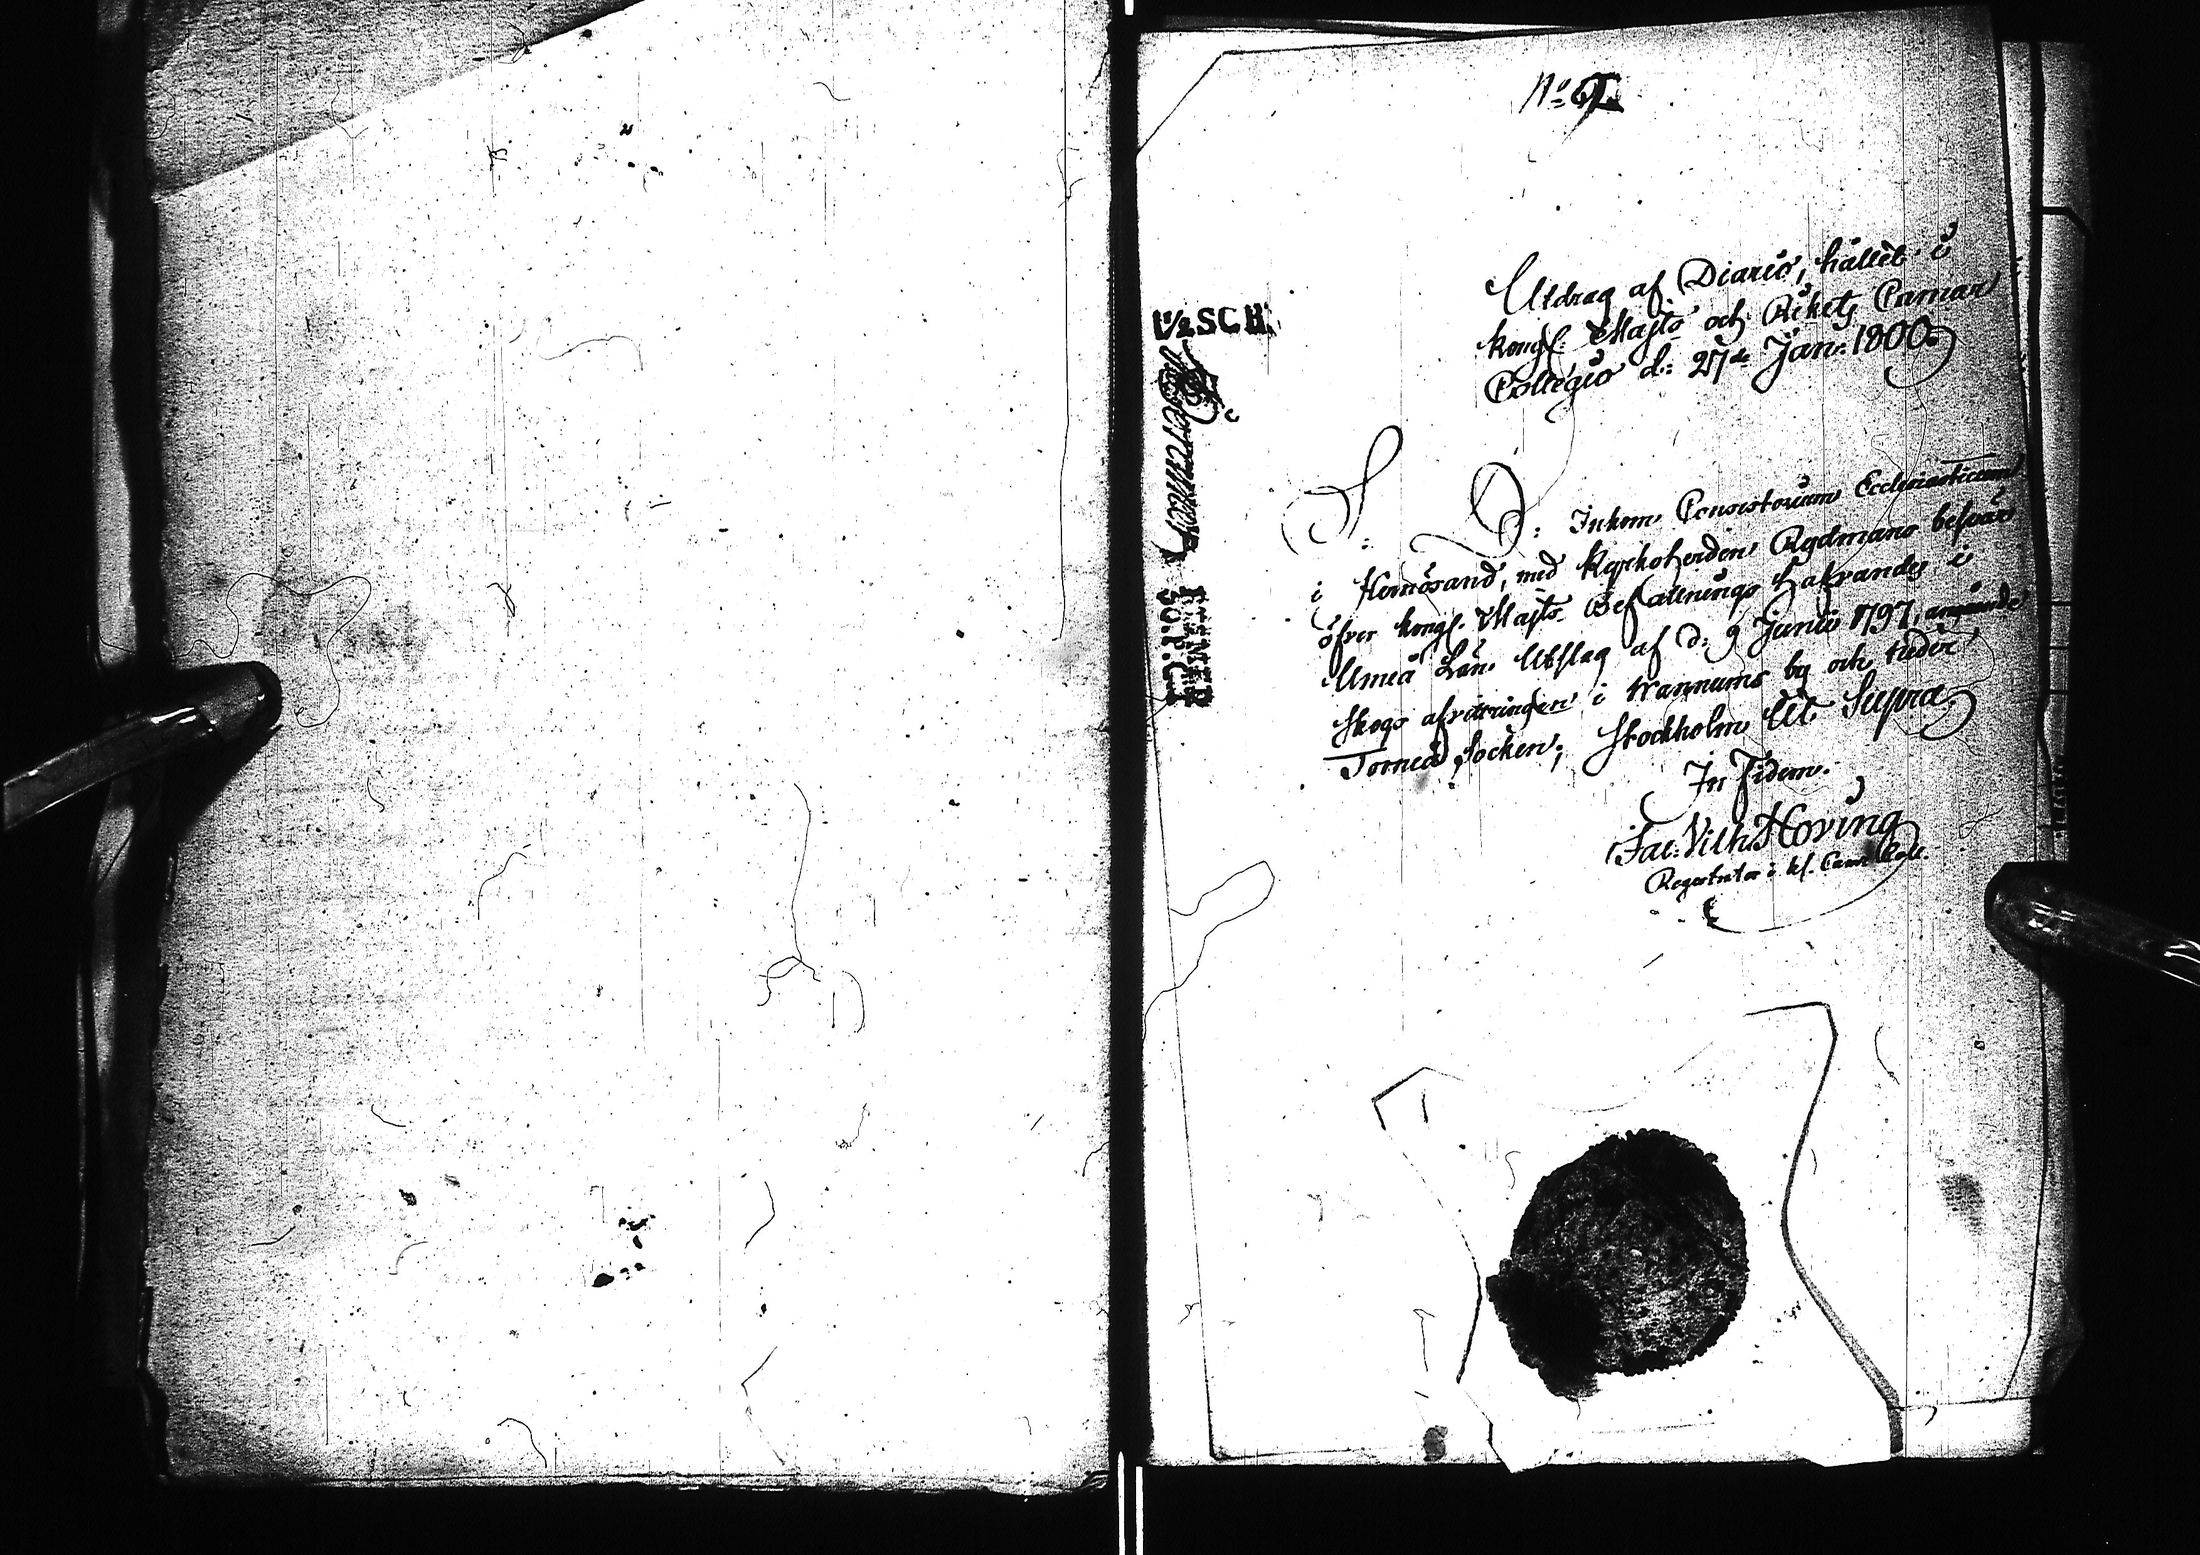 Utdrag af Diario, hållet i
Kongl. Majts och Rikets Camar
Collegio d: 27de Jan: 1800.
S. D: Inkom Consistorium Ecclesiasticum
i Hernösand, med Kyrkoherden Rydmans besvär
öfver Kongl. Majts Befallnings Hafvandes i
Umeå Län Utslag af d: 9 Junii 1797, angående
Skogs afvittringen i Wannums by och Neder
Torneå Socken; Stockholm Ut Supra,
In Fidem.
Jac: Vilh Hoving
Registrator i Kl. Cam: Coll.
1/2 SCH.